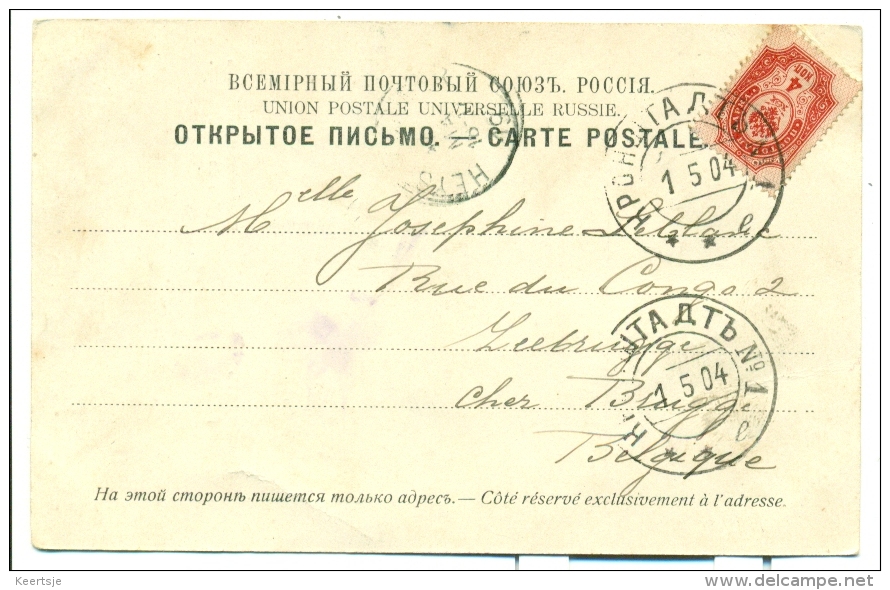 ВСЕМІРНЫЙ ПОЧТОВЫЙ СОЮЗЪ. РОССІЯ.
UNION POSTALE UNIVERSELLE RUSSIE.
ОТКРЫТОЕ ПИСЬМО. — CARTE POSTALE.
4 КОП.
КРОНШТАДТЪ
1 5 04
Melle Josephine
Rue du Congo 2
Zeebrugge
cher Brugge
Belgique
КРОНШТАДТЪ № 1
1 5 04
На этой сторонѣ пишется только адресъ.— Côté réservé exclusivement à l'adresse.
Keertsje
www.delcampe.net